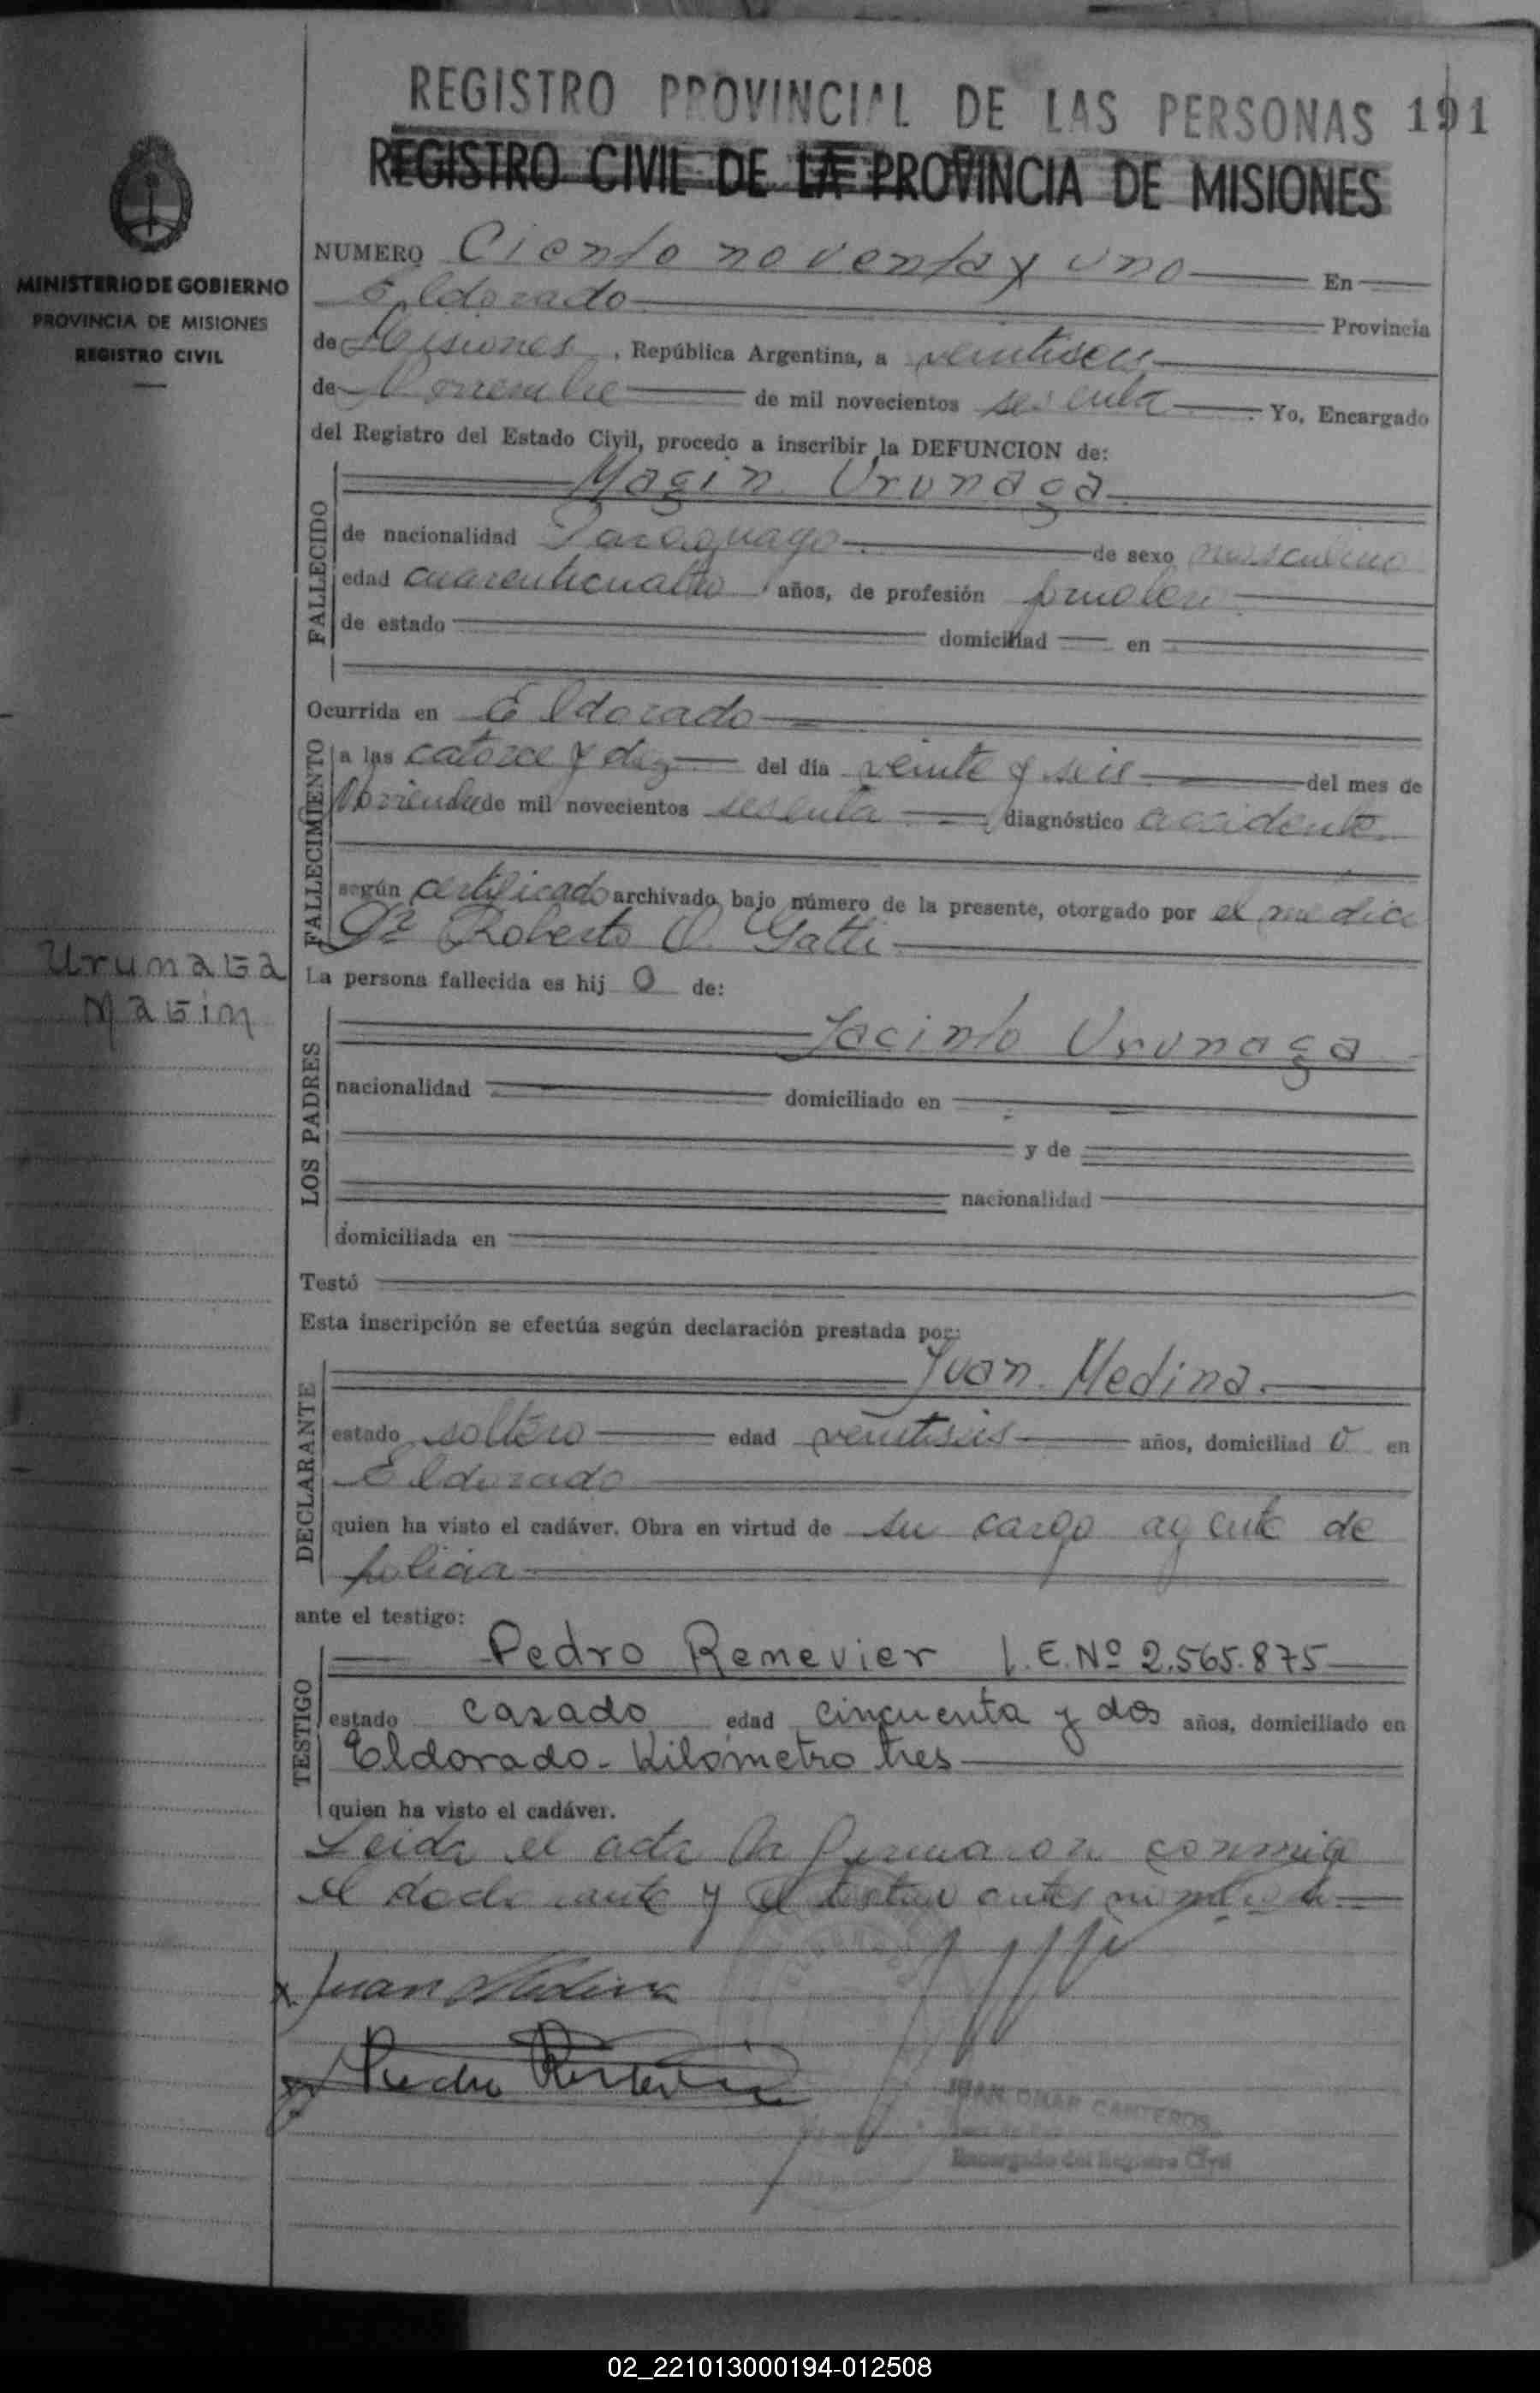 REGISTRO PROVINCIAL DE LAS PERSONAS 191
REGISTRO CIVIL DE LA PROVINCIA DE MISIONES
MINISTERIO DE GOBIERNO
PROVINCIA DE MISIONES
REGISTRO CIVIL
NUMERO Ciento noventa y uno En
Eldorado Provincia
de Misiones, República Argentina, a veintiseis
de Noviembre de mil novecientos sesenta. Yo, Encargado
del Registro del Estado Civil, procedo a inscribir la DEFUNCION de:
FALLECIDO
Magin Urunaga
de nacionalidad Paraguayo de sexo masculino
edad cuarenticuatro años, de profesión jornalero
de estado domiciliad en
Ocurrida en Eldorado
FALLECIMIENTO
a las catorce y diez del día veinte y seis del mes de
Noviembre de mil novecientos sesenta diagnóstico accidente
según certificado archivado bajo número de la presente, otorgado por el medico
Dr Roberto O. Gatti
Urunaga
Magin
La persona fallecida es hij o de:
LOS PADRES
Jacinto Urunaga
nacionalidad domiciliado en
y de
nacionalidad
domiciliada en
Testó
Esta inscripción se efectúa según declaración prestada por:
DECLARANTE
Juan Medina.
estado soltero edad veintiseis años, domiciliad o en
Eldorado
quien ha visto el cadáver. Obra en virtud de su cargo agente de
policia
ante el testigo:
TESTIGO
Pedro Renevier L.E. Nº 2.565.875
estado casado edad cincuenta y dos años, domiciliado en
Eldorado - Kilómetro tres
quien ha visto el cadáver.
Leida el acta la firmaron conmigo
el declarante y el testigo antes nombrado
x Juan Medina
Pedro Renevier
JUAN OMAR CANTEROS
Encargado del Registro Civil
02_221013000194-012508